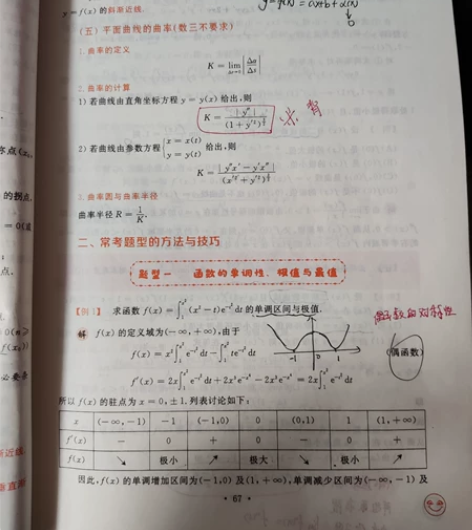 y=f(x) 的斜渐近线.
(五) 平面曲线的曲率(数三不要求)
1. 曲率的定义
K = lim_{Δs→0} |Δα/Δs|
2. 曲率的计算
1) 若曲线由直角坐标方程 y = y(x) 给出,则
K = |y″| / (1 + y′²)^{3/2}
2) 若曲线由参数方程 { x = x(t) y = y(t) 给出,则
K = |y″x′ - y′x″| / (x′² + y′²)^{3/2}
3. 曲率圆与曲率半径
曲率半径 R = 1/K.
二、常考题型的方法与技巧
题型一 函数的单调性、极值与最值
【例1】 求函数 f(x) = ∫_1^{x²} (x² - t)e^{-t²} dt 的单调区间与极值.
解 f(x) 的定义域为(-∞, +∞),由于
f(x) = x²∫_1^{x²} e^{-t²} dt - ∫_1^{x²} te^{-t²} dt
-1 0 1
(偶函数)
f′(x) = 2x∫_1^{x²} e^{-t²} dt + 2x³e^{-x⁴} - 2x³e^{-x⁴} = 2x∫_1^{x²} e^{-t²} dt
所以 f(x) 的驻点为 x = 0, ±1. 列表讨论如下:
x (-∞, -1) -1 (-1,0) 0 (0,1) 1 (1, +∞)
f′(x) - 0 + 0 - 0 +
f(x) ↘ 极小 ↗ 极大 ↘ 极小 ↗
因此, f(x) 的单调增加区间为(-1,0) 及(1, +∞),单调减少区间为(-∞, -1) 及
• 67 •